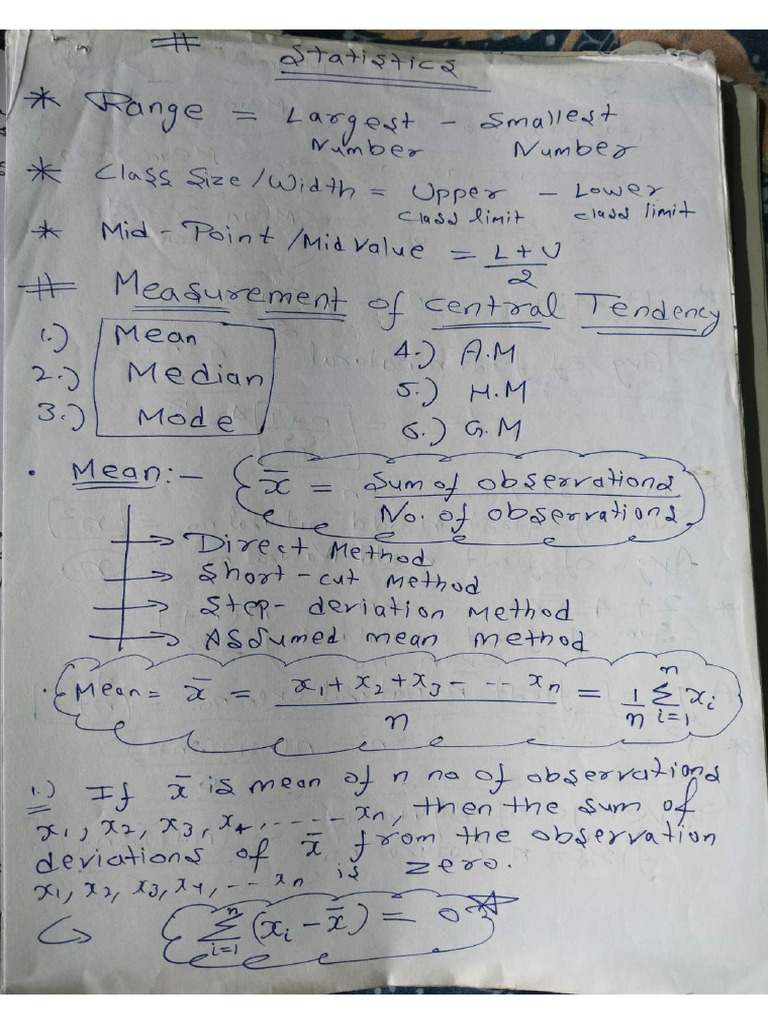 # Statistics
* Range = Largest - Smallest
Number Number
* Class Size/Width = Upper - Lower
class limit class limit
* Mid-Point/Mid Value = L+U
2
# Measurement of central Tendency
1.) Mean 4.) A.M
2.) Median 5.) H.M
3.) Mode 6.) G.M
• Mean:- x̄ = Sum of observations
No. of observations
→ Direct Method
→ Short-cut Method
→ Step-deviation Method
→ Assumed mean method
• Mean = x̄ = x₁+x₂+x₃- -- xₙ = 1 n Σ i=1 xᵢ
n n
1.) If x̄ is mean of n no of observations
x₁, x₂, x₃, x₄, ----- xₙ, then the sum of
deviations of x̄ from the observation
x₁, x₂, x₃, x₄, -- xₙ is zero.
↪ n Σ i=1 (xᵢ - x̄) = 0